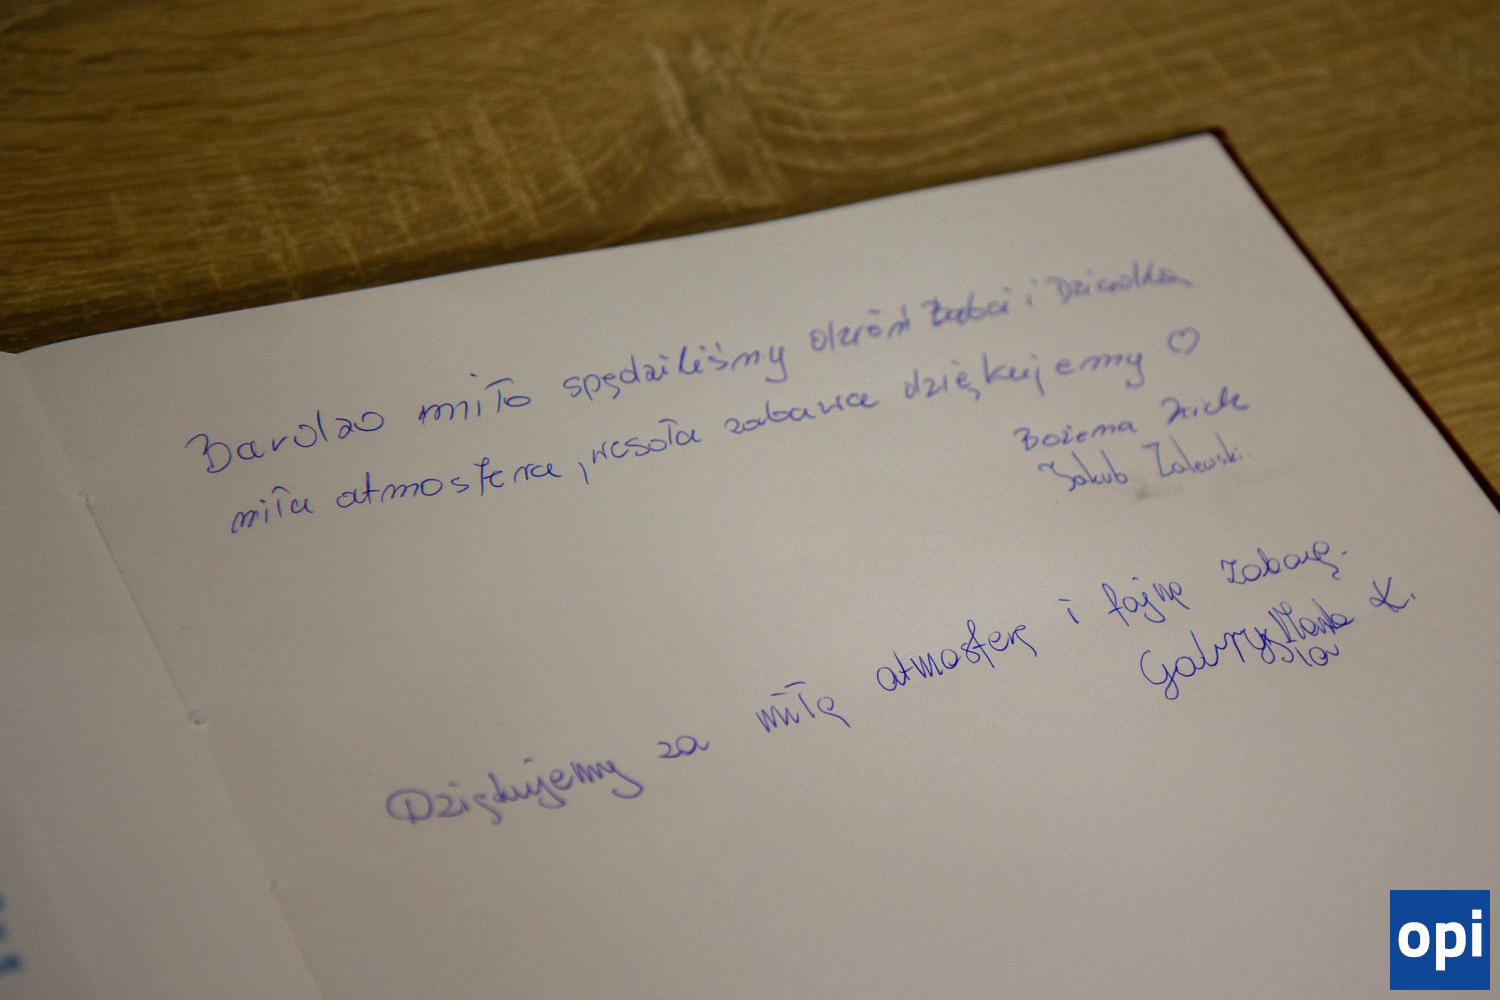 Bardzo miło spędziliśmy dzień Babci i Dziadka,
miła atmosfera, wesoła zabawa dziękujemy ♡
Bożena
Jakub Zalewski
Dziękujemy za miłą atmosferę i fajną zabawę.
Gabrysia Marta K.
opi